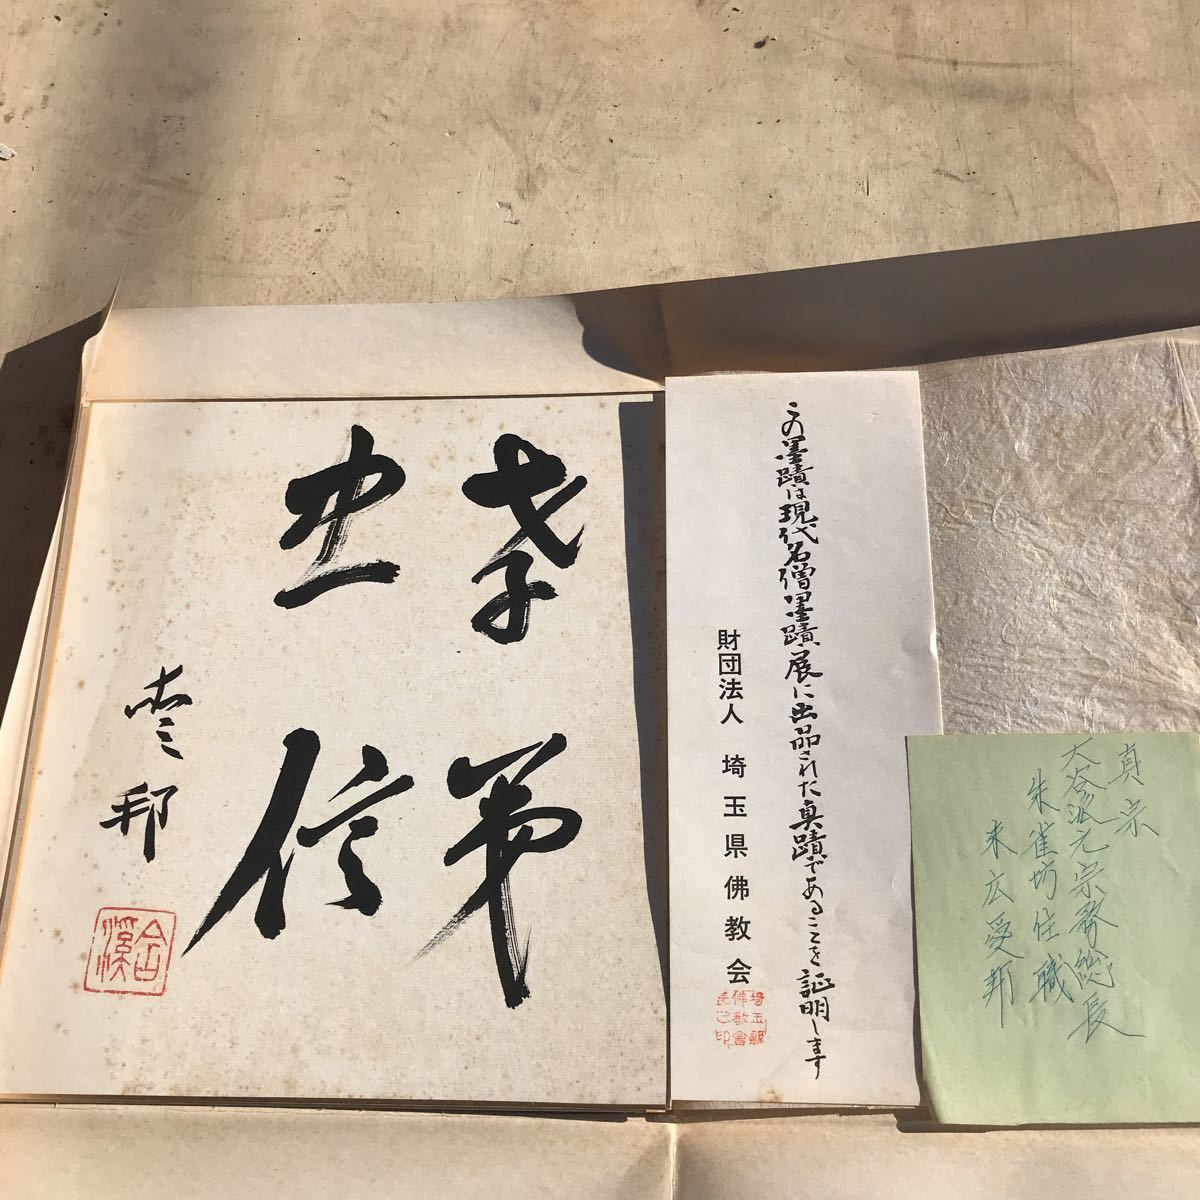 孝弟
忠信
愛邦
この墨蹟は現代名僧墨蹟展に出品された真蹟であることを証明します
財団法人 埼玉県佛教会
埼玉縣
佛教會
長之印
真宗
大谷派元宗務総長
朱雀坊住職
末広愛邦